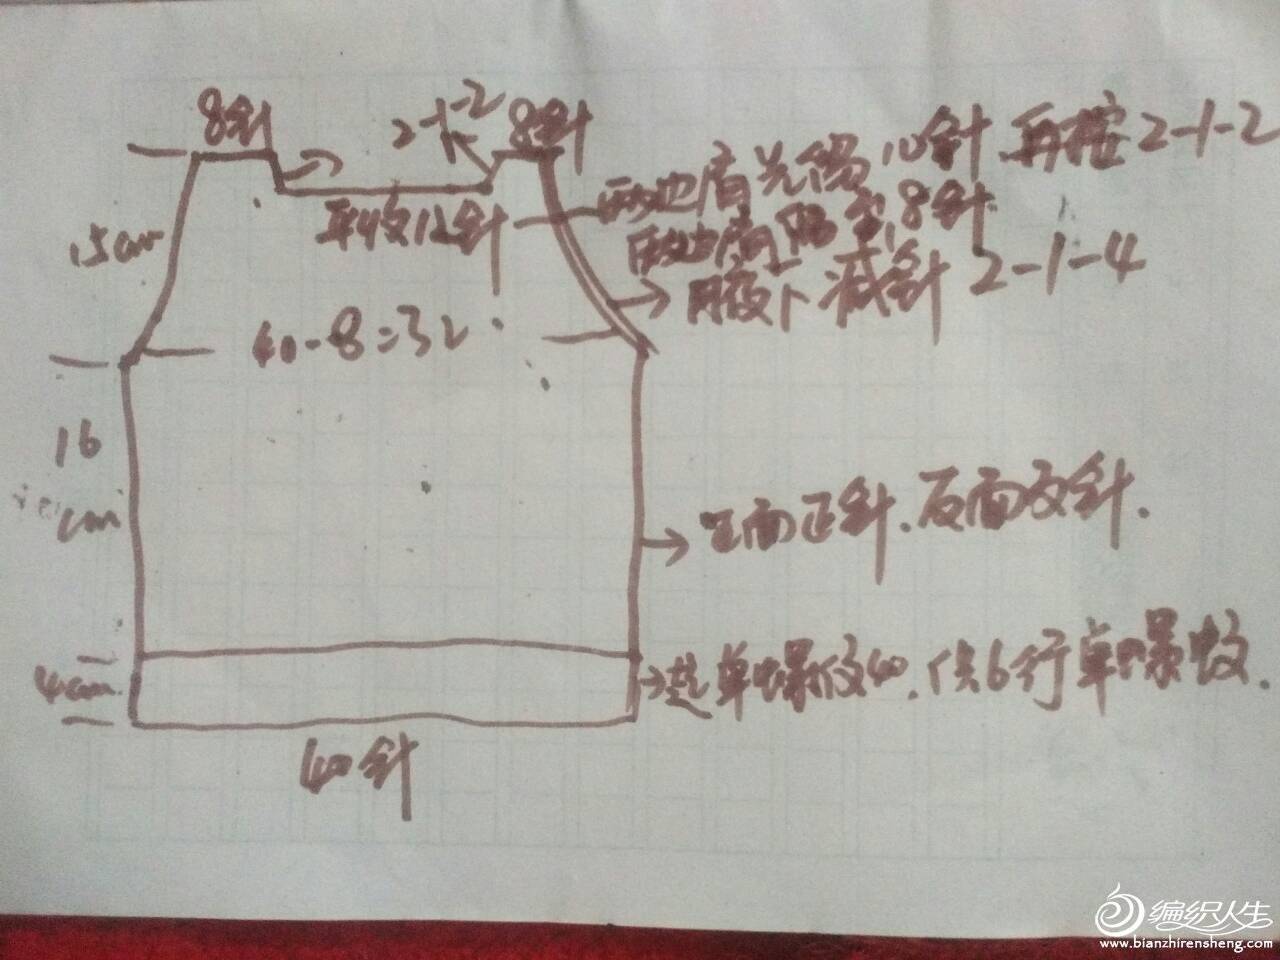 8针
2-1-2
8针
平收12针
两边肩先留10针.再按2-1-2
两边肩留至8针.
腋下减针 2-1-4
15cm
40-8=32
16
cm
正面正针.反面反针.
4cm
起单螺纹40.织6行单螺纹.
40针
编织人生
www.bianzhirensheng.com